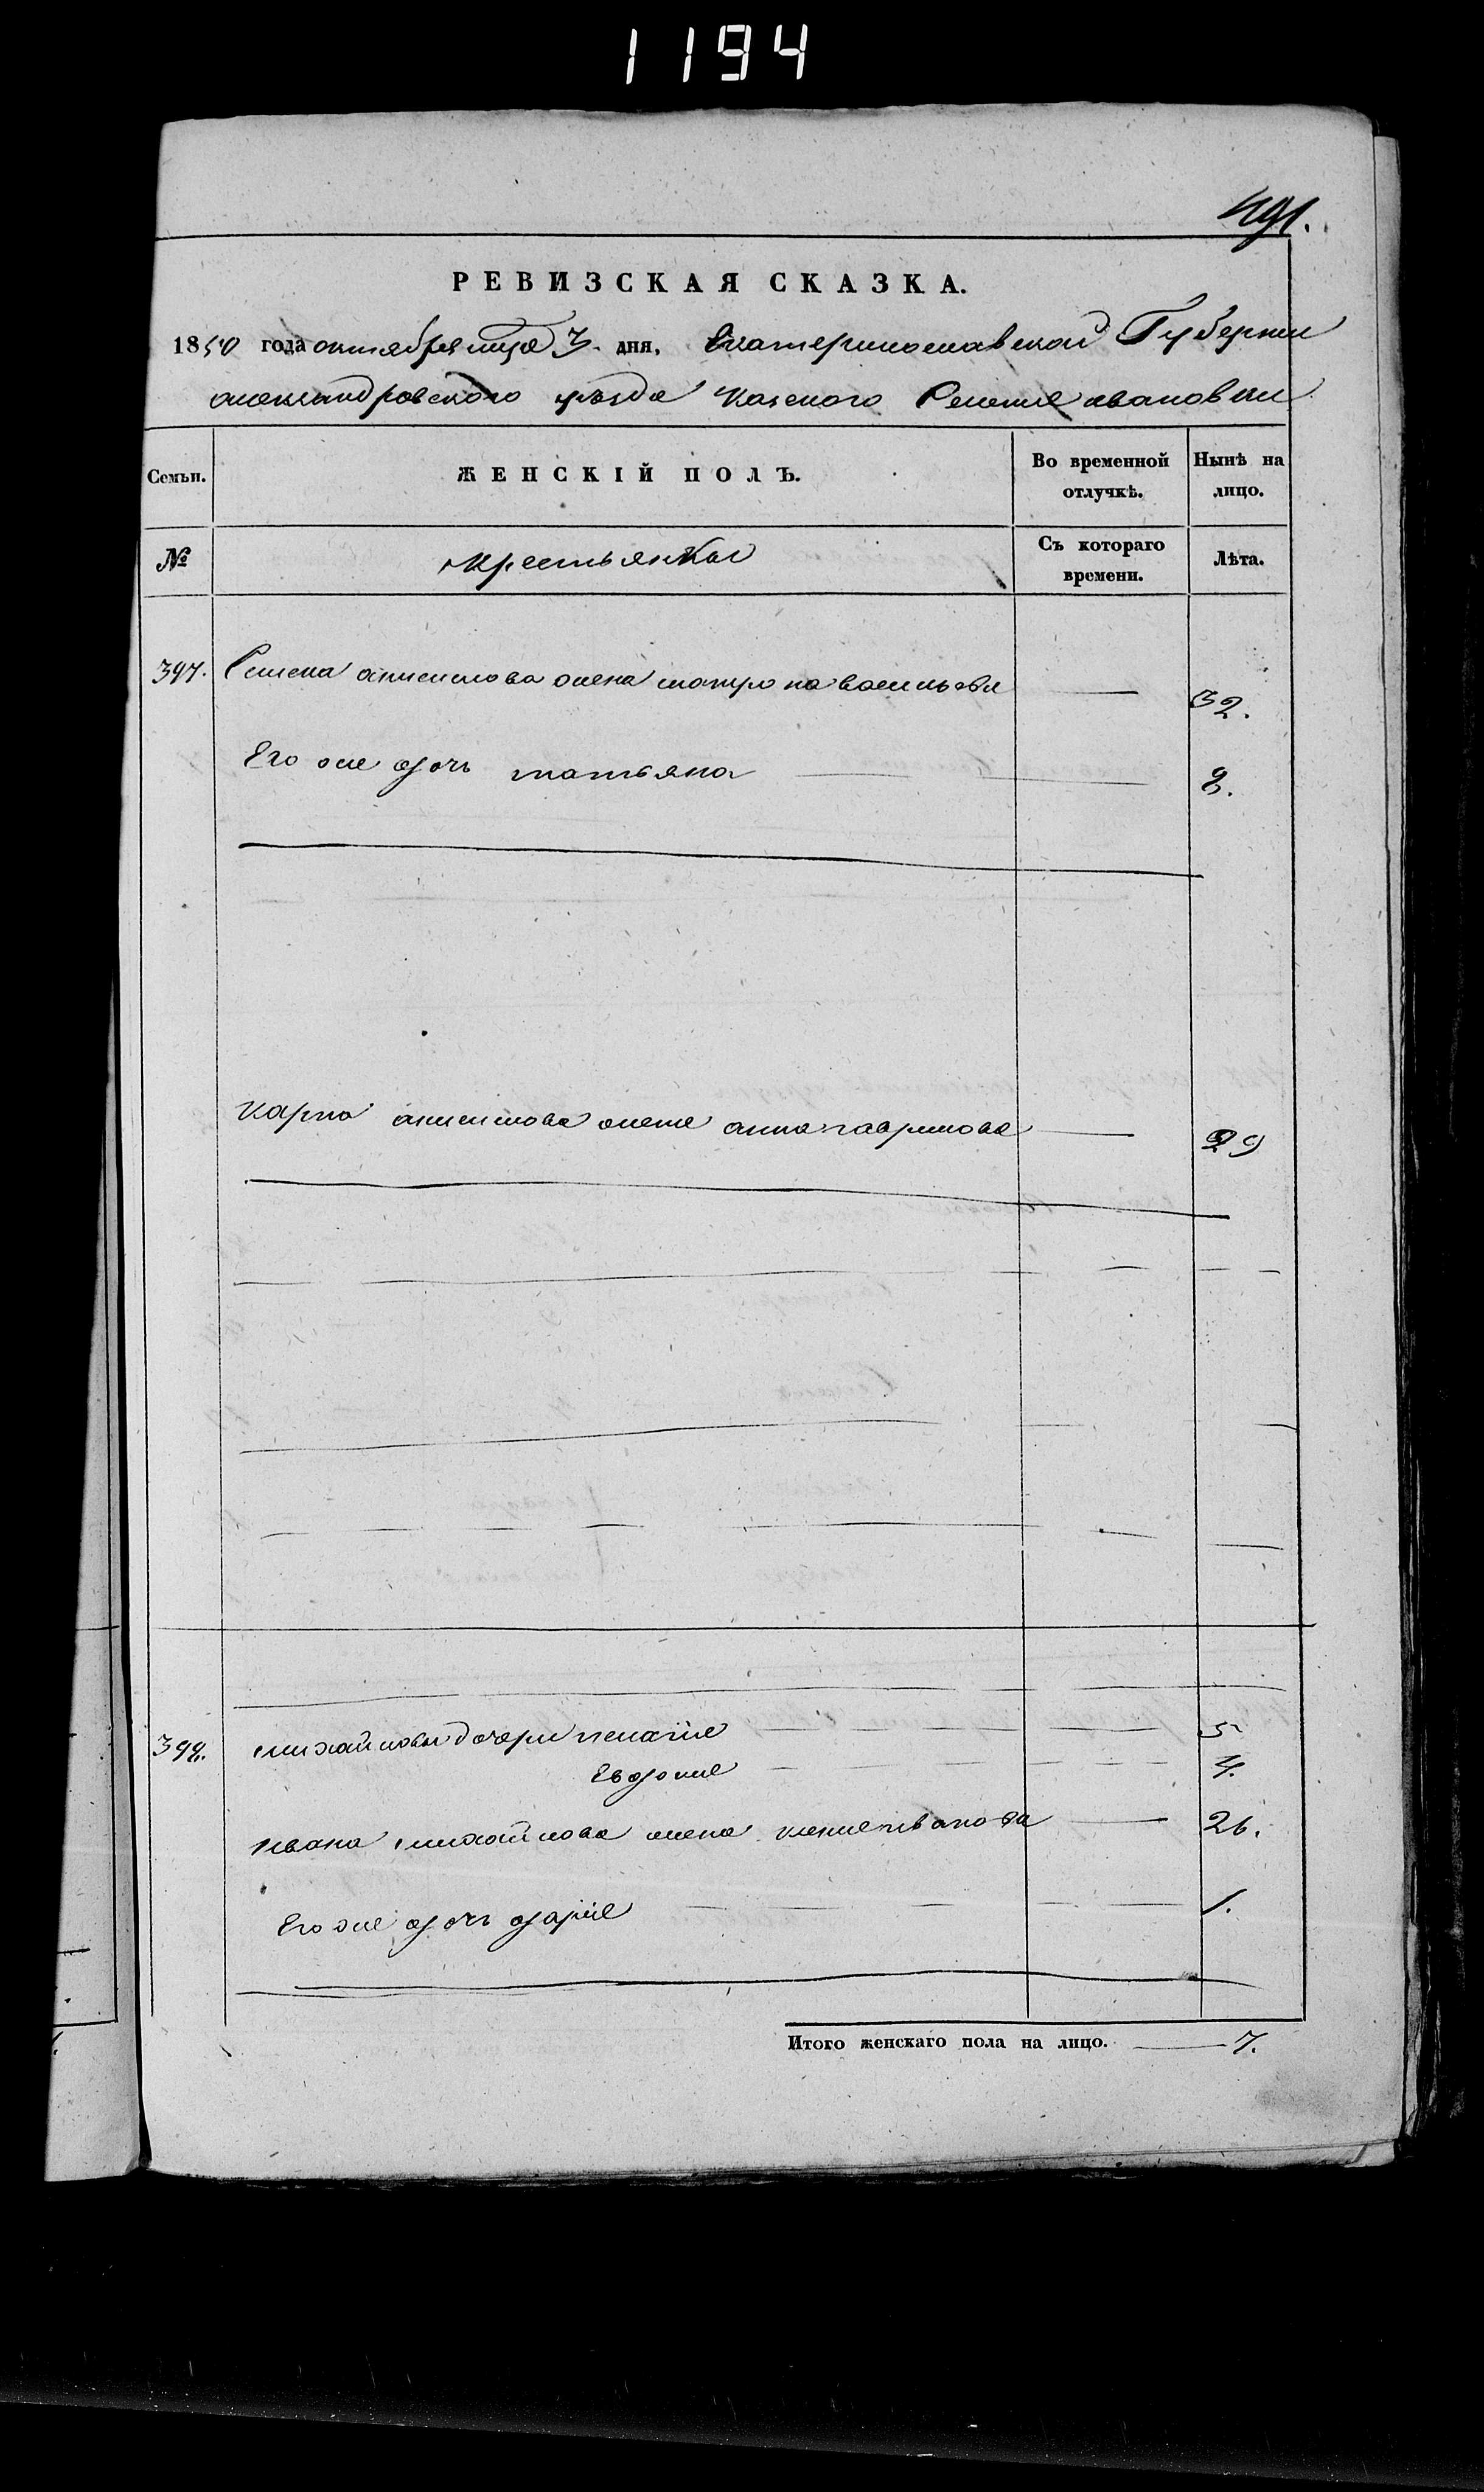 1194
491.
РЕВИЗСКАЯ СКАЗКА.
1850 года октября мца 3 дня, Екатеринославской Губернии
александровского уезда казеного Селения ивановки
Семьи. ЖЕНСКІЙ ПОЛЪ. Во временной отлучкѣ. Нынѣ на лицо.
№ крестьянки Съ котораго времени. Лѣта.
397. Семена анисимова жена матрона васильева 32.
Его же дочь татьяна 8.
карпа анисимова жена анна гаврилова 29
398. михайловы дочери пелагия 5
Евдокия 4.
ивана михайлова жена ксения иванова 26.
Его же дочь дария 1.
Итого женскаго пола на лицо. 7.